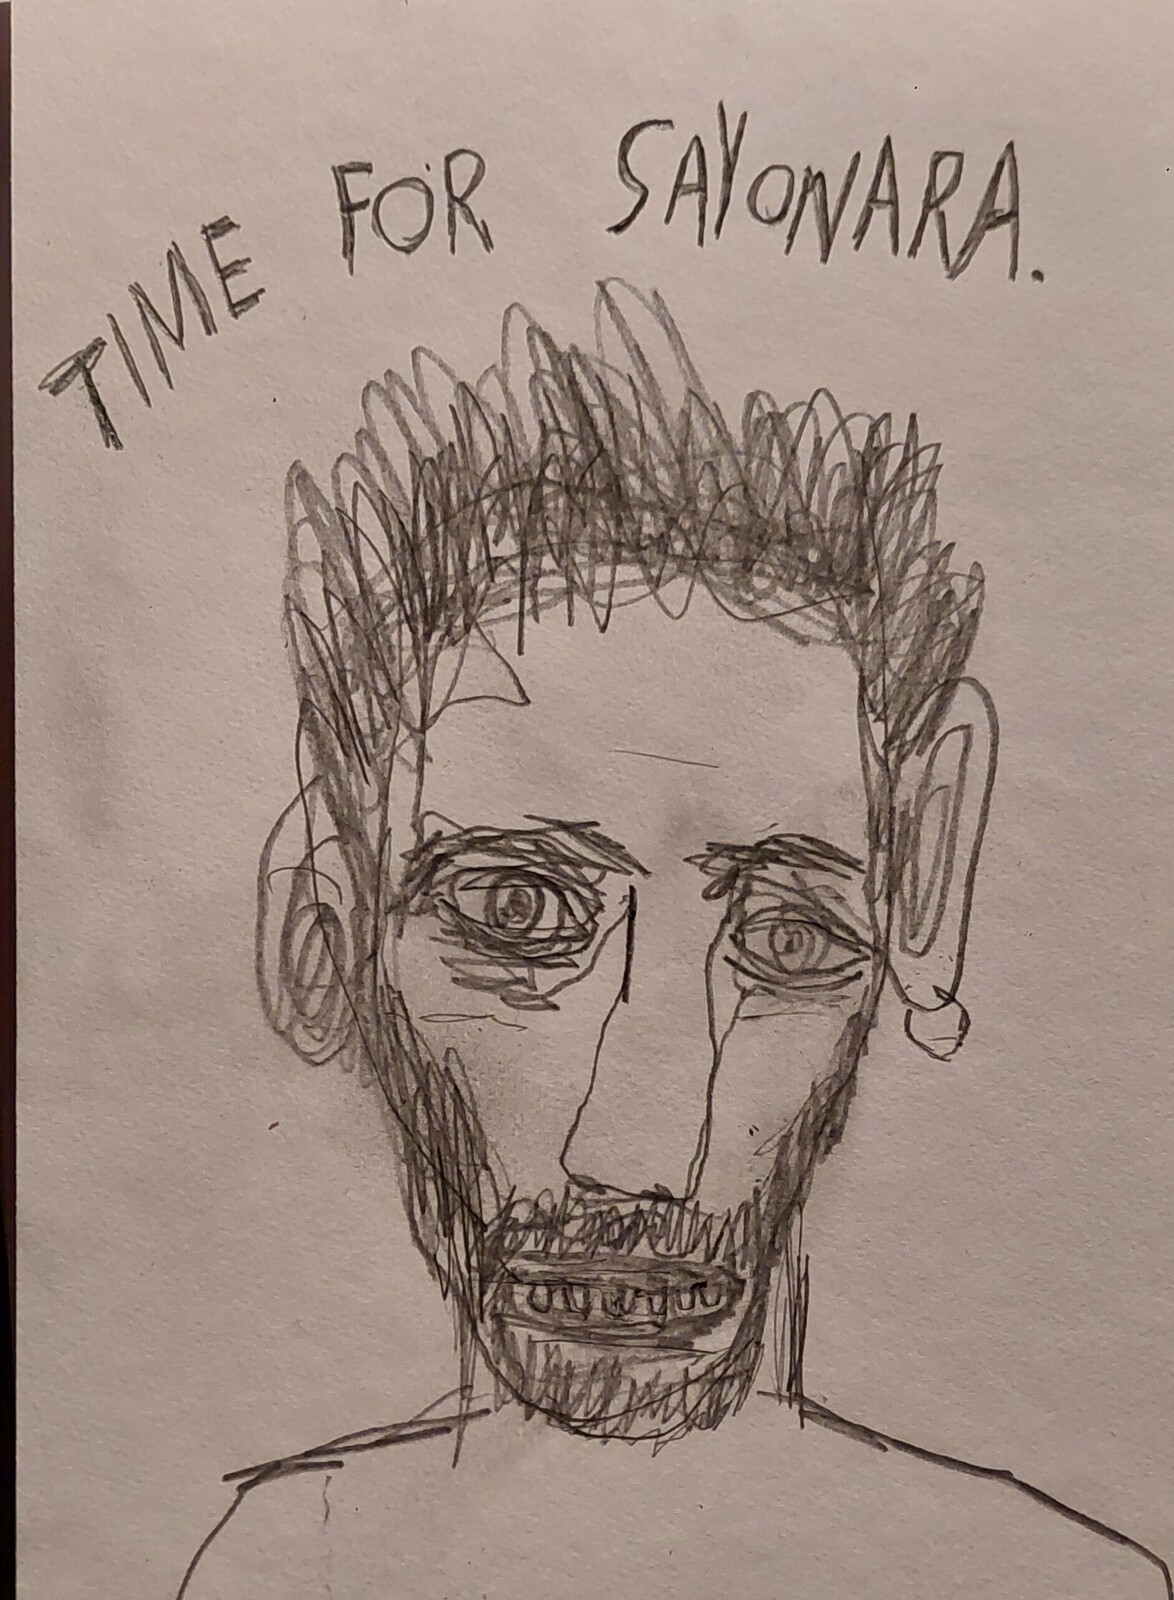 TIME FOR SAYONARA.